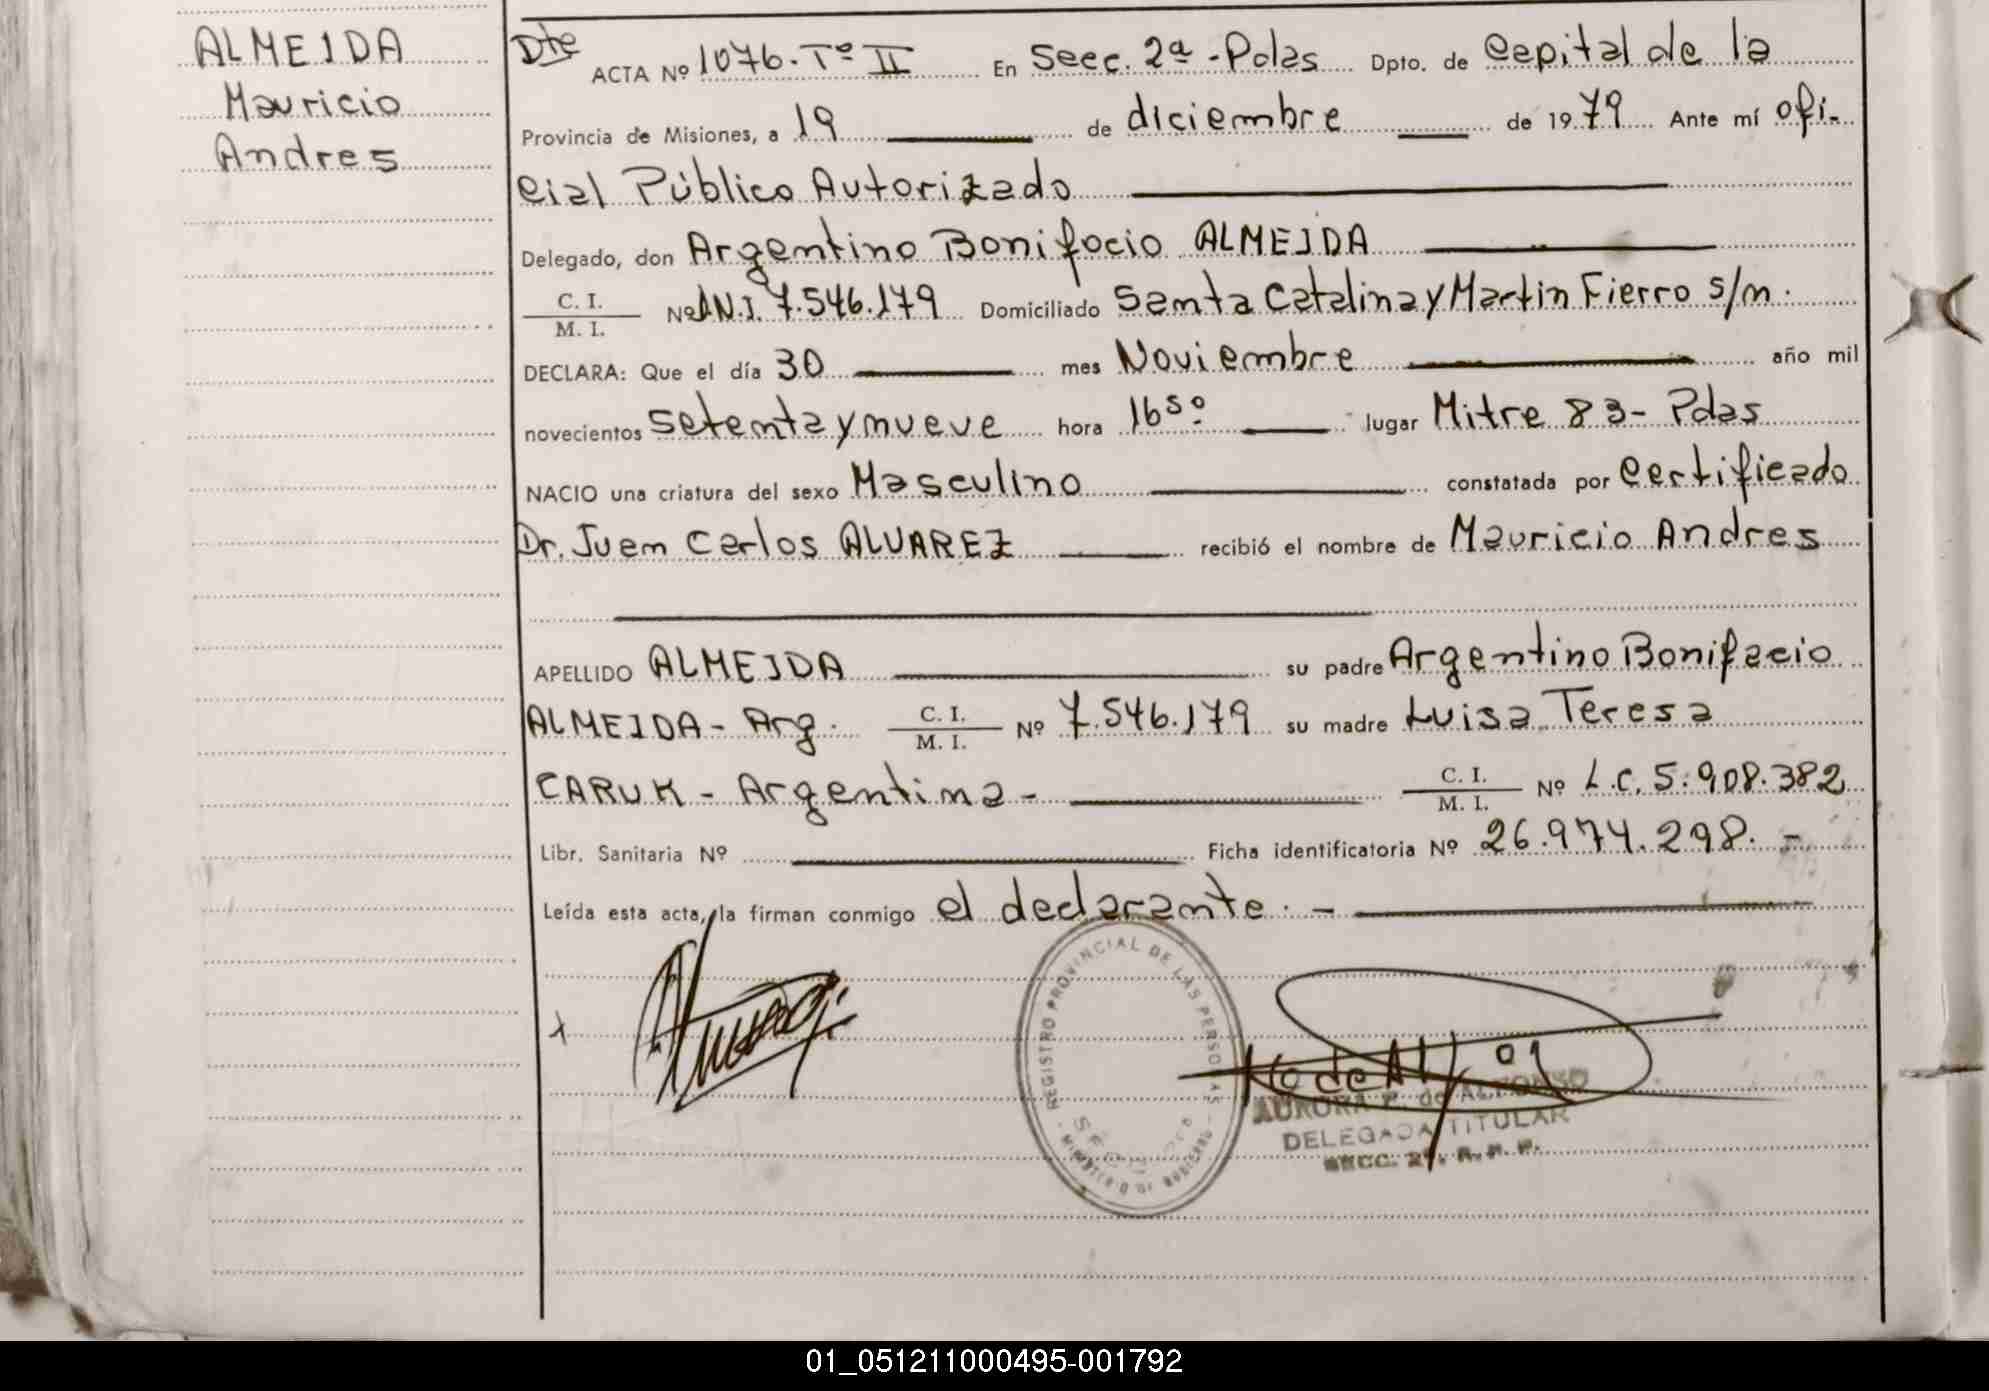 ALMEIDA
Mauricio
Andres
Dte ACTA Nº 1076. Tº II En Secc. 2ª - Pdas Dpto. de Capital de la
Provincia de Misiones, a 19 de diciembre de 1979 Ante mí ofi-
cial Público Autorizado
Delegado, don Argentino Bonifacio ALMEIDA
C. I.
M. I. Nº D.N.I. 7.546.179 Domiciliado Santa Catalina y Martin Fierro s/n.
DECLARA: Que el día 30 mes Noviembre año mil
novecientos setenta y nueve hora 16⁵⁰ lugar Mitre 83 - Pdas
NACIO una criatura del sexo Masculino constatada por Certificado
Dr. Juan Carlos ALVAREZ recibió el nombre de Mauricio Andres
APELLIDO ALMEIDA su padre Argentino Bonifacio
ALMEIDA - Arg. C. I.
M. I. Nº 7.546.179 su madre Luisa Teresa
CARUK - Argentina - C. I.
M. I. Nº L.C. 5.908.382
Libr. Sanitaria Nº Ficha identificatoria Nº 26.974.298. -
Leída esta acta, la firman conmigo el declarante. -
REGISTRO PROVINCIAL DE LAS PERSONAS
AURORA P. de ALFONSO
DELEGADA TITULAR
SECC. 2ª. R. P. P.
01_051211000495-001792